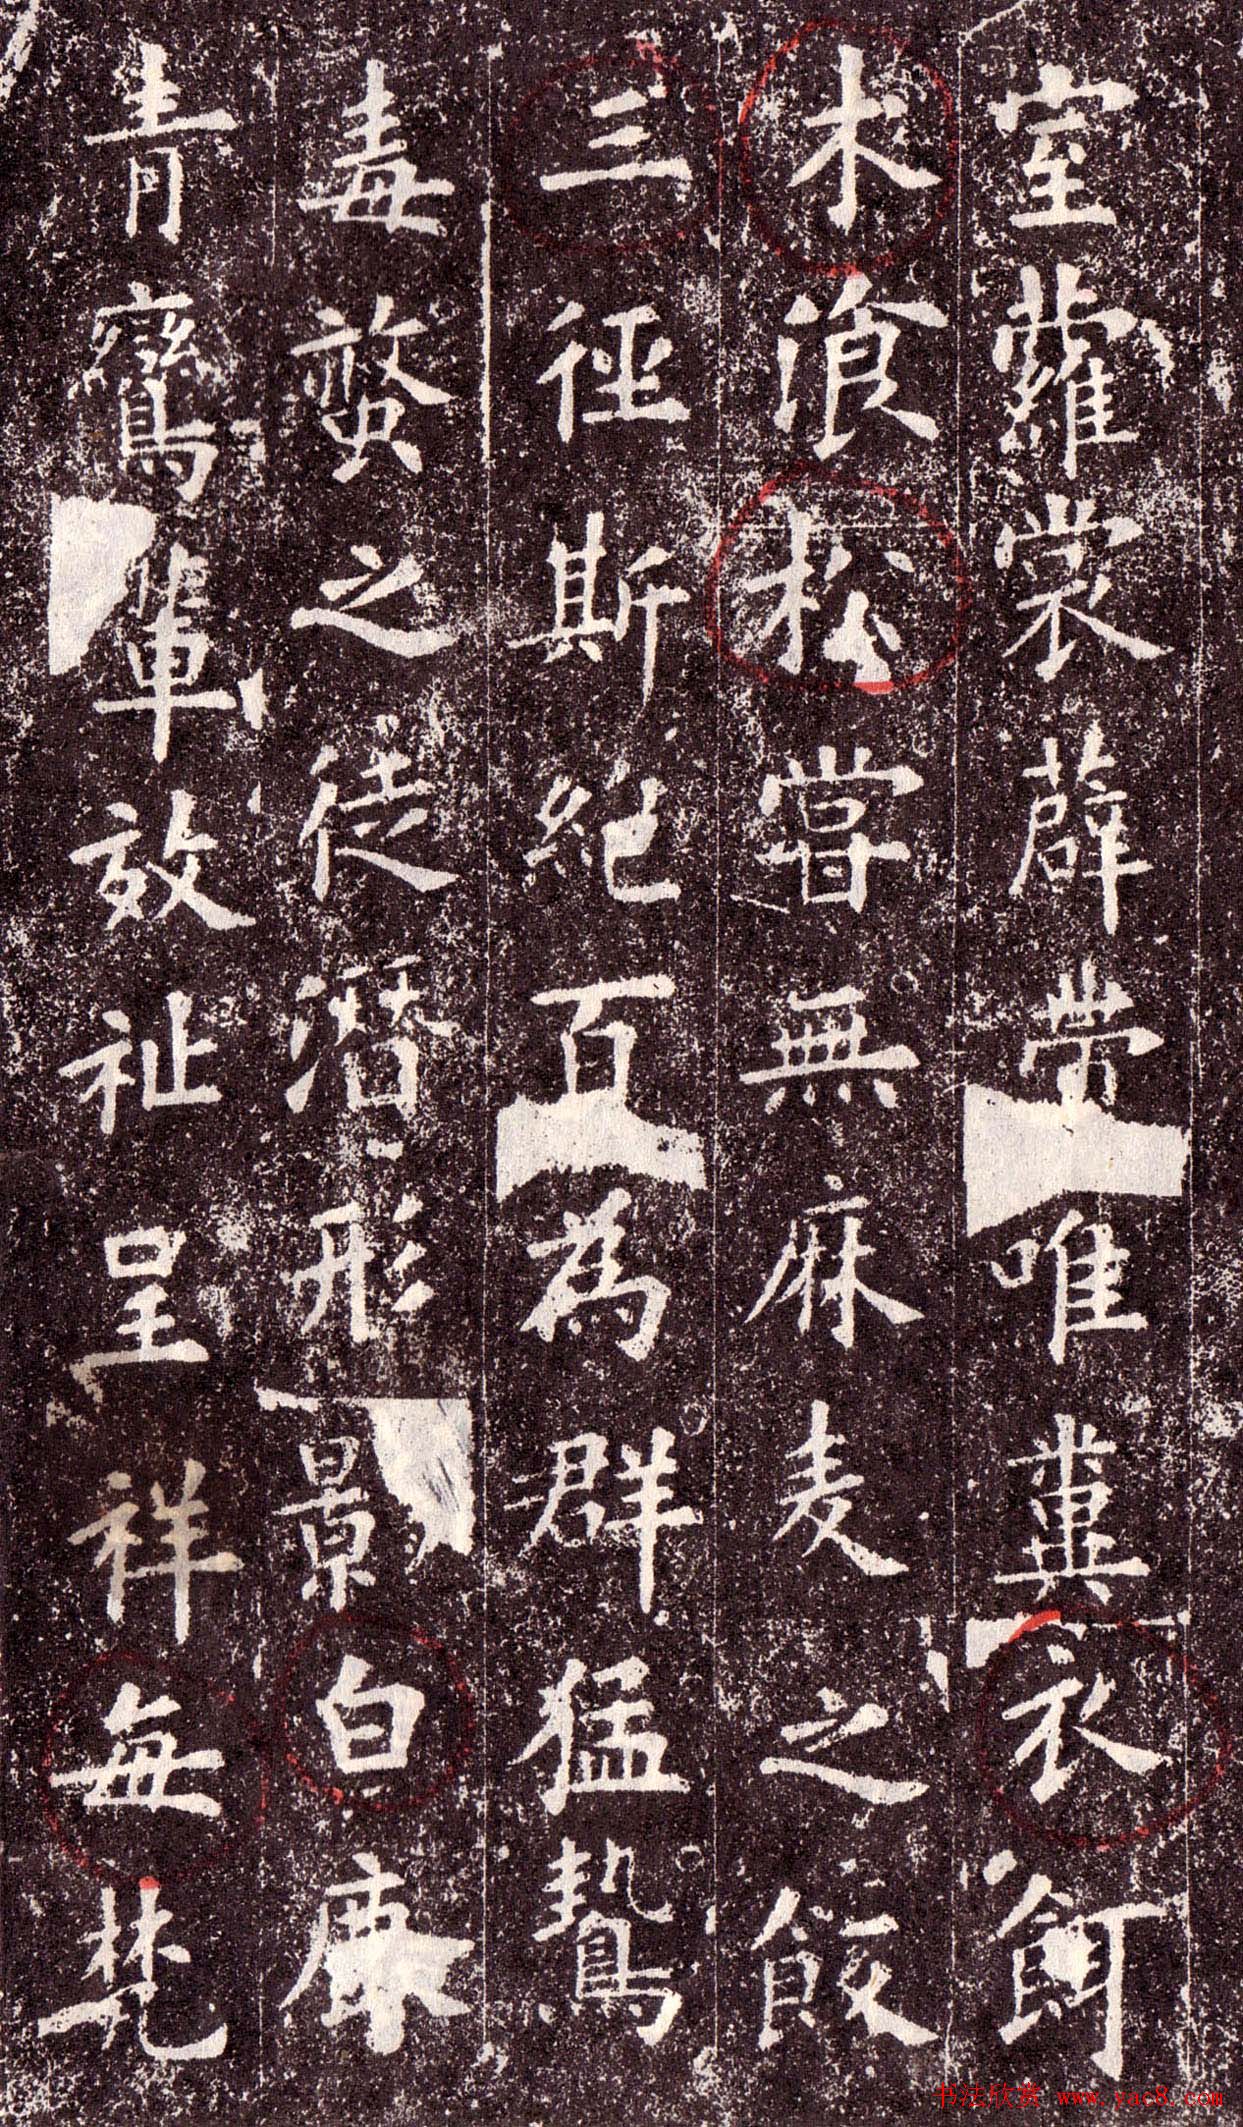 室蘿裳薜帶唯糞衣餌
朮湌松嘗無麻麦之飯
三徑斯絕百為群猛鷙
毒螫之徒潛形景白鹿
青鸞輩效祉呈祥每梵
书法欣赏 www.yac8.com